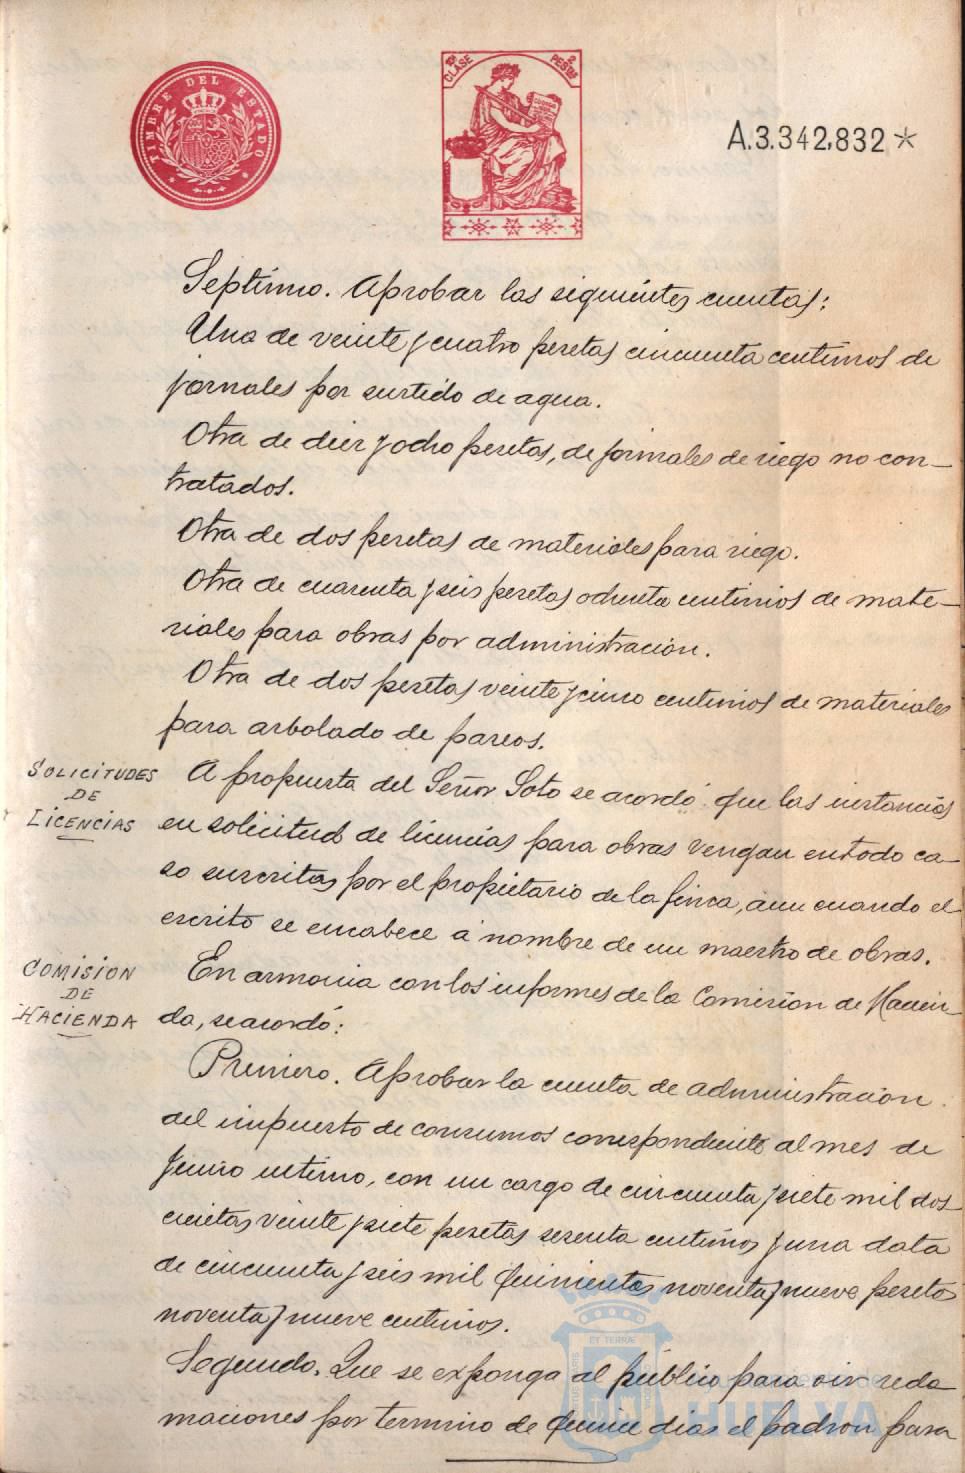 TIMBRE DEL ESTADO
10ª CLASE 2 PESETAS
A.3.342,832*
Septimo. Aprobar las siguientes cuentas:
Una de veinte y cuatro pesetas cincuenta centimos de
jornales por surtido de agua.
Otra de diez y ocho pesetas, de jornales de riego no con-
tratados.
Otra de dos pesetas de materiales para riego.
Otra de cuarenta y seis pesetas ochenta centimos de mate-
riales para obras por administración.
Otra de dos pesetas veinte y cinco centimos de materiales
para arbolado de paseos.
SOLICITUDES
DE
LICENCIAS
A propuesta del Señor Soto se acordó que las instancias
en solicitud de licencias para obras vengan en todo ca-
so suscritas por el propietario de la finca, aun cuando el
escrito se encabece á nombre de un maestro de obras.
COMISION
DE
HACIENDA
En armonia con los informes de la Comision de Hacien-
da, se acordó:
Primero. Aprobar la cuenta de administración
del impuesto de consumos correspondiente al mes de
Junio ultimo, con un cargo de cincuenta y siete mil dos
cientas veinte y siete pesetas sesenta centimos y una data
de cincuenta y seis mil quinientas noventa y nueve pesetas
noventa y nueve centimos.
Segundo. Que se exponga al público para oir recla
maciones por termino de quince dias el padron para
Ayuntamiento de
HUELVA